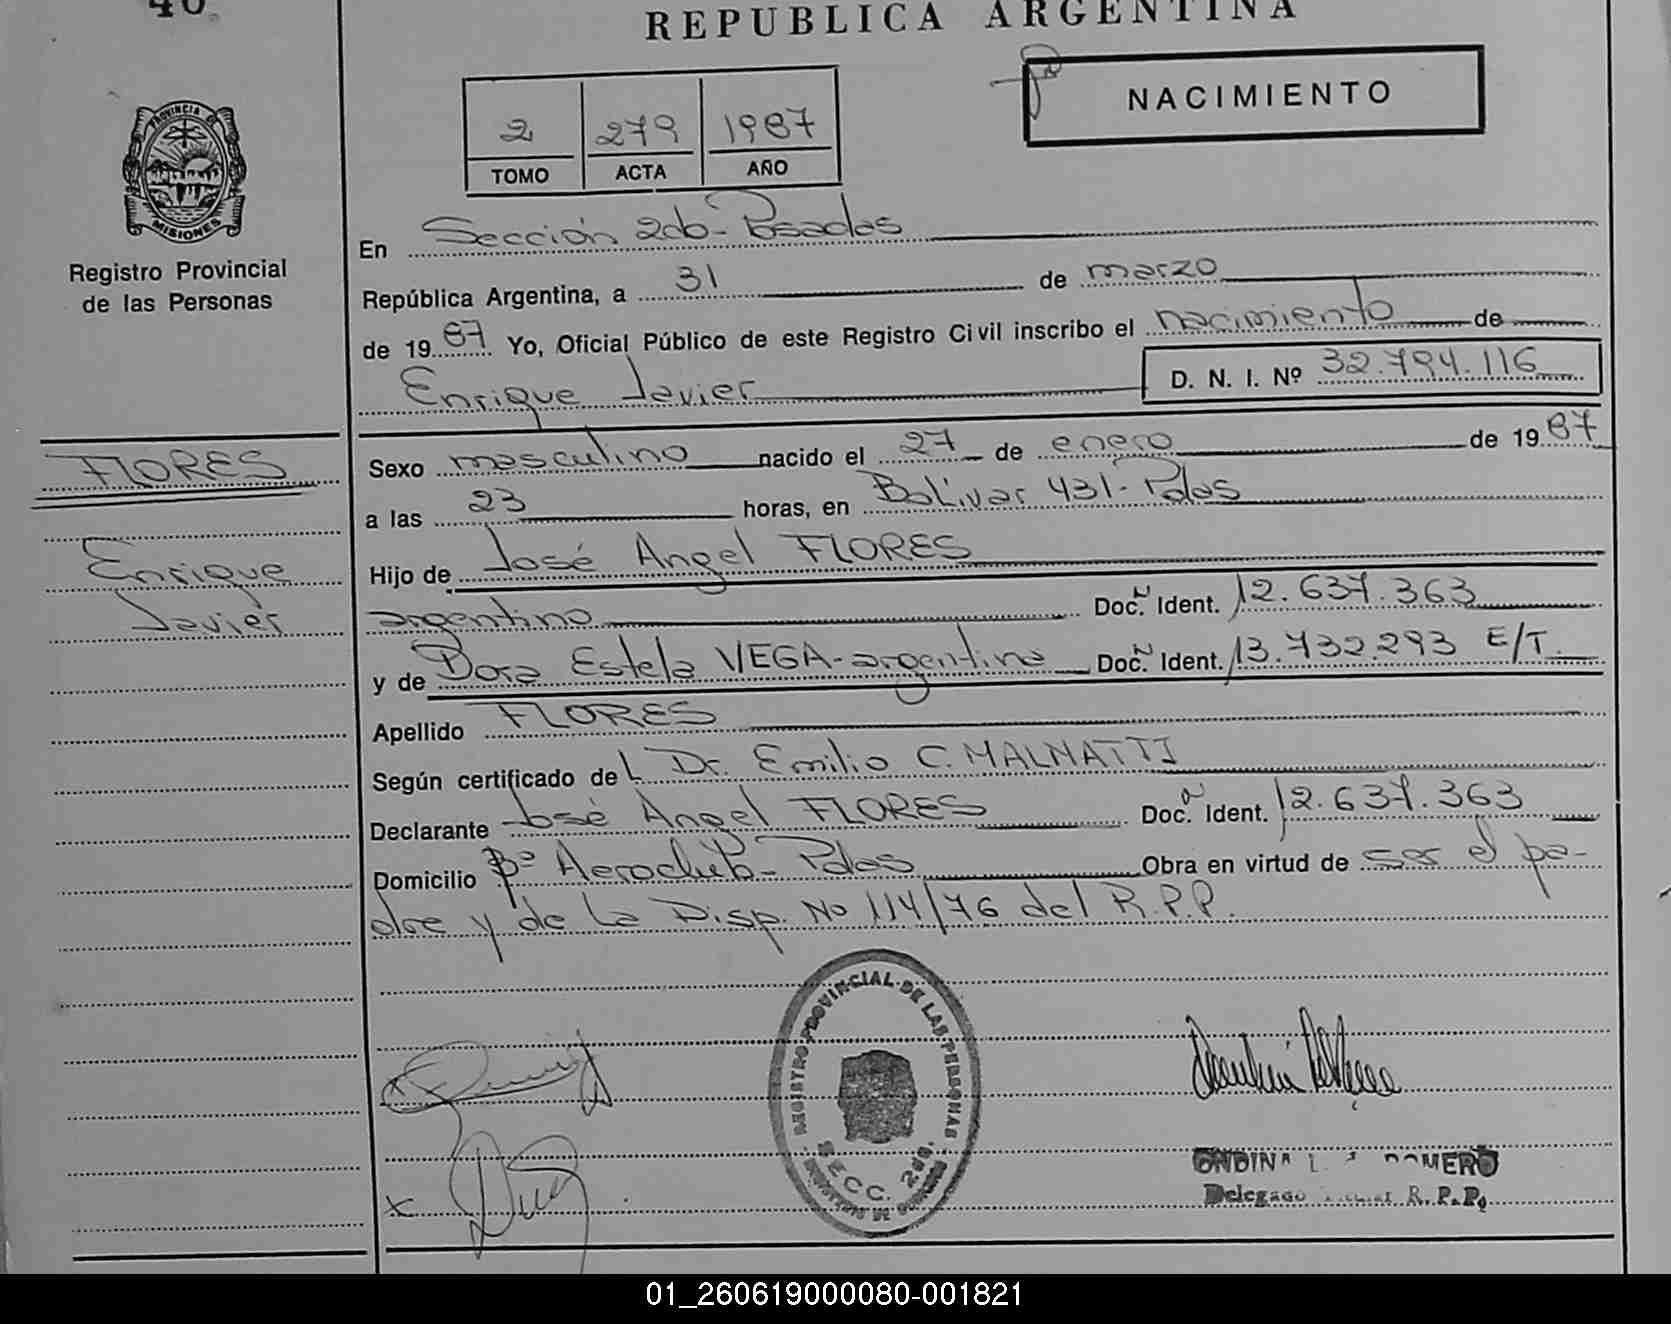 40
REPUBLICA ARGENTINA
NACIMIENTO
2 279 1987
TOMO ACTA AÑO
PROVINCIA DE
MISIONES
Registro Provincial
de las Personas
En Sección 2da- Posadas
República Argentina, a 31 de marzo
de 1987 Yo, Oficial Público de este Registro Civil inscribo el nacimiento de
Enrique Javier D. N. I. Nº 32.794.116
FLORES
Enrique
Javier
Sexo masculino nacido el 27 de enero de 1987
a las 23 horas, en Bolívar 431- Pdas
Hijo de José Angel FLORES
argentino Doc. Ident. 12.637.363
y de Dora Estela VEGA-argentina Doc. Ident. 13.732.293 E/T.
Apellido FLORES
Según certificado del Dr. Emilio C. MALNATTI
Declarante José Angel FLORES Doc. Ident. 12.637.363
Domicilio Bº Aeroclub- Pdas Obra en virtud de ser el pa-
dre y de la Disp. Nº 114/76 del R.P.P.
REGISTRO PROVINCIAL DE LAS PERSONAS
SECC. 2da.
ONDINA ROMERO
Delegado R.P.P.
01_260619000080-001821